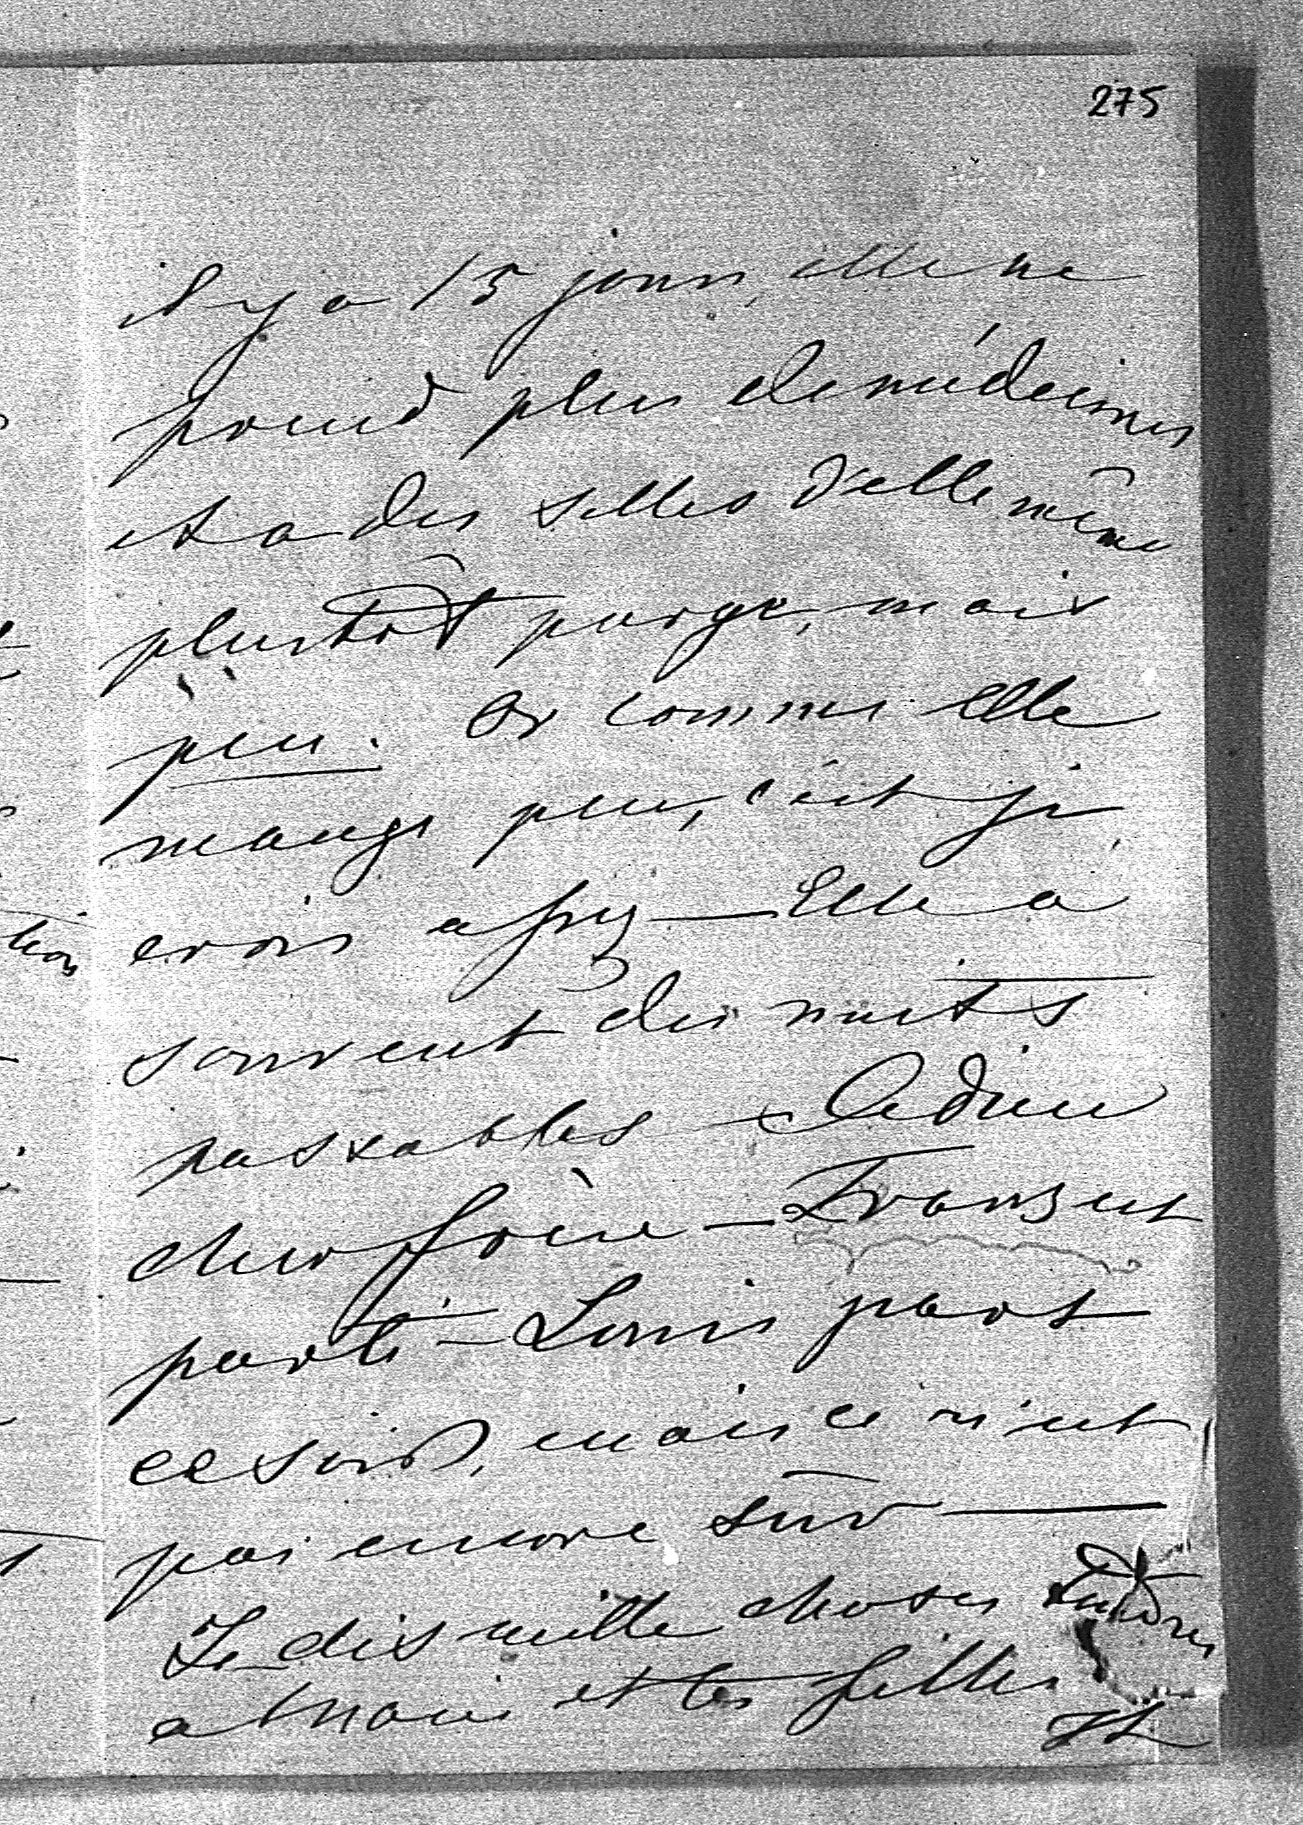 275
il y a 15 jours, elle ne
prend plus de médecines
et a des selles d'elle même
plustôt purge, mais
peu. Or comme elle
mange peu, c'est je
crois assez — Elle a
souvent des nuits
passables — Adieu
cher frère — Franz est
parti — Louis part
ce soir, mais ce n'est
pas encore sûr —
Je dis mille choses tendres
a Marie et tes filles